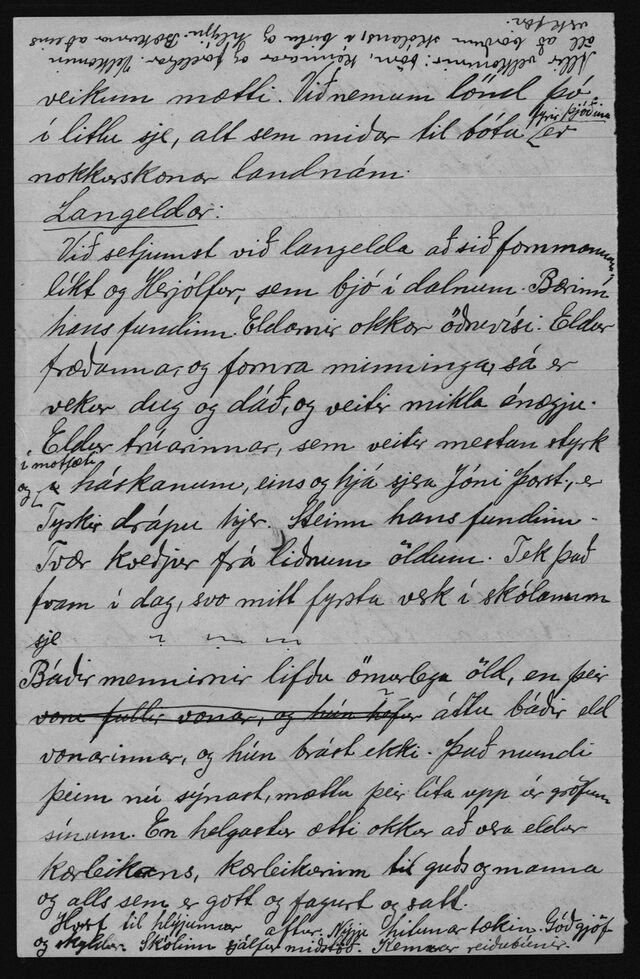 Allir velkomnir: börn, kennarar og foreldrar. Velkomin
öll að borðum skólans, í birtu og hlýju. Bækurnar aðeins
veikum mætti. Við nemum lönd þó
í litlu sje, alt sem miðar til bóta fyrir þjóðina er
nokkurskonar landnám.
Langeldar:
Við setjumst við langelda að sið fornmanna,
líkt og Herjólfur, sem bjó í dalnum. Bærinn
hans fundinn. Eldarnir okkar öðruvísi. Eldur
fræðannar, og fornra minninga, sá er
vekur dug og dáð, og veitir mikla ánægju.
Eldur trúarinnar, sem veitir mestan styrk
í mótlæti
og háskanum, eins og hjá sjera Jóni Þorst., er
Tyrkir drápu hjer. Steinn hans fundinn.
Tvær kveðjur frá liðnum öldum. Tek það
fram í dag, svo mitt fyrsta verk í skólanum
sje
Báðir mennirnir lifðu ömurlega öld, en þeir
voru fullir vonar, og hún áttu báðir eld
vonarinnar, og hún brást ekki. Það mundi
þeim nú sýnast, mættu þeir líta upp úr gröfum
sínum. En helgastur ætti okkar að vera eldur
kærleikans, kærleikurinn til guðs og manna
og alls sem er gott og fagurt og satt.
Horf til hlýjunnar aftur. Nýju hitunartækin. Góð gjöf
og skyldur. Skólinn sjálfur miðstöð. Kennarar reiðubúnir.